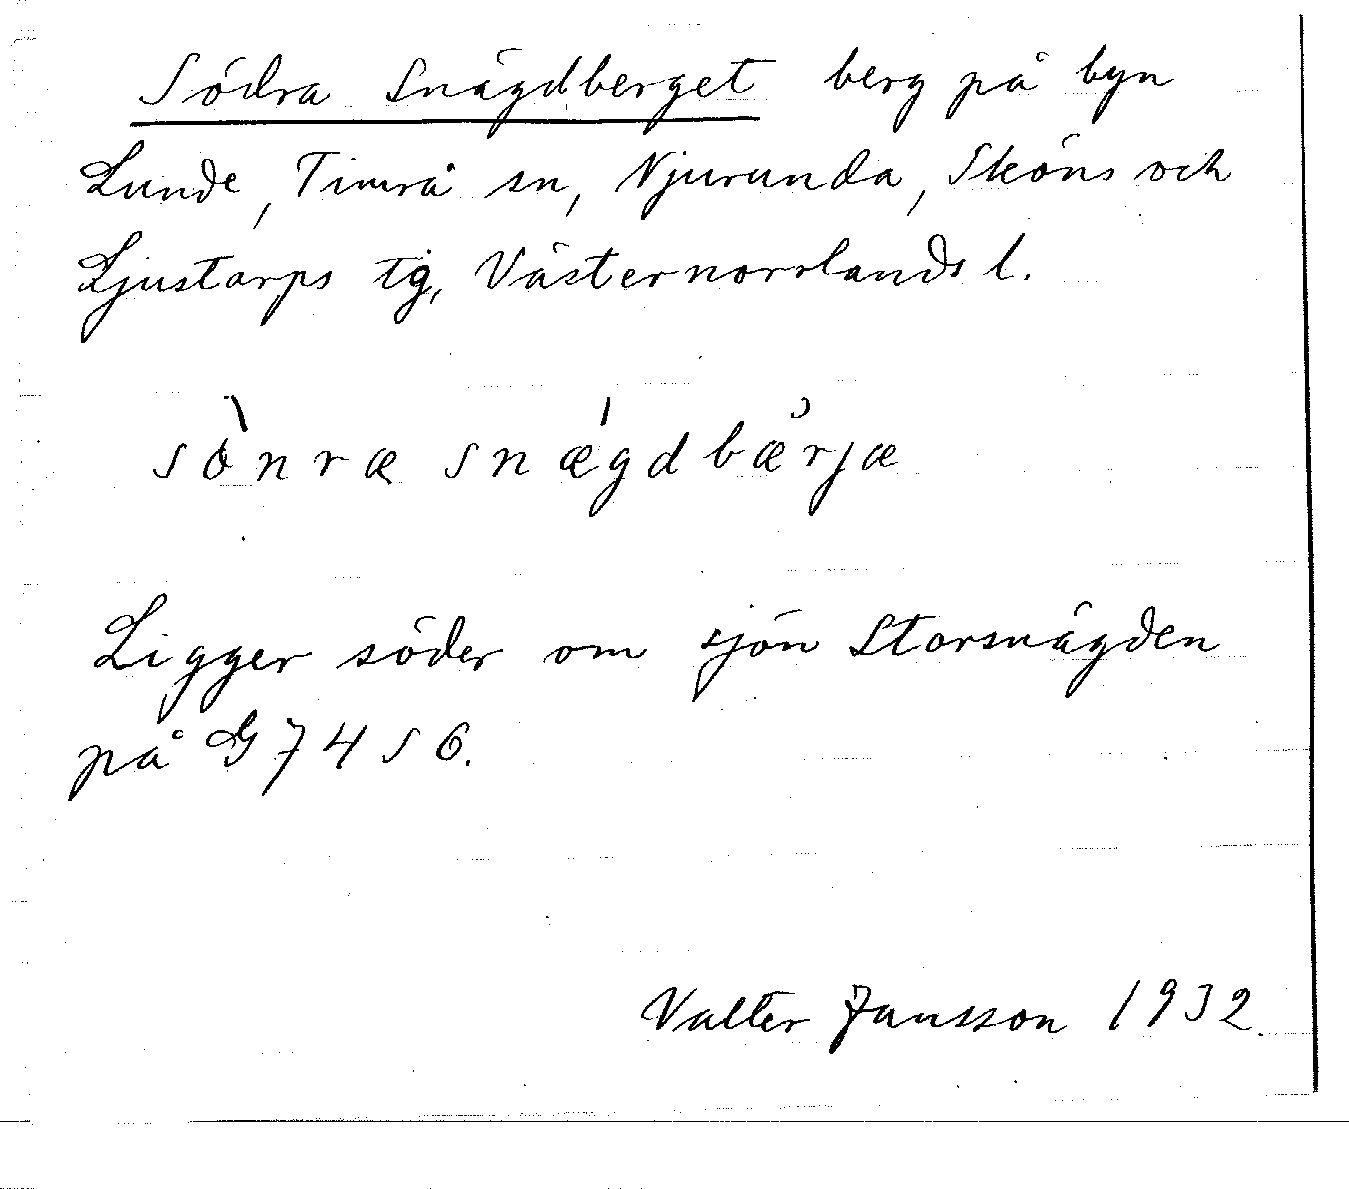 Södra Snägdberget berg på byn
Lunde, Timrå sn, Njurunda, Sköns och
Ljustorps tg, Västernorrlands l.
sö̀nræ snǽgdbærjæ
Ligger söder om sjön Storsnägden
på G 7456.
Valter Jansson 1932.